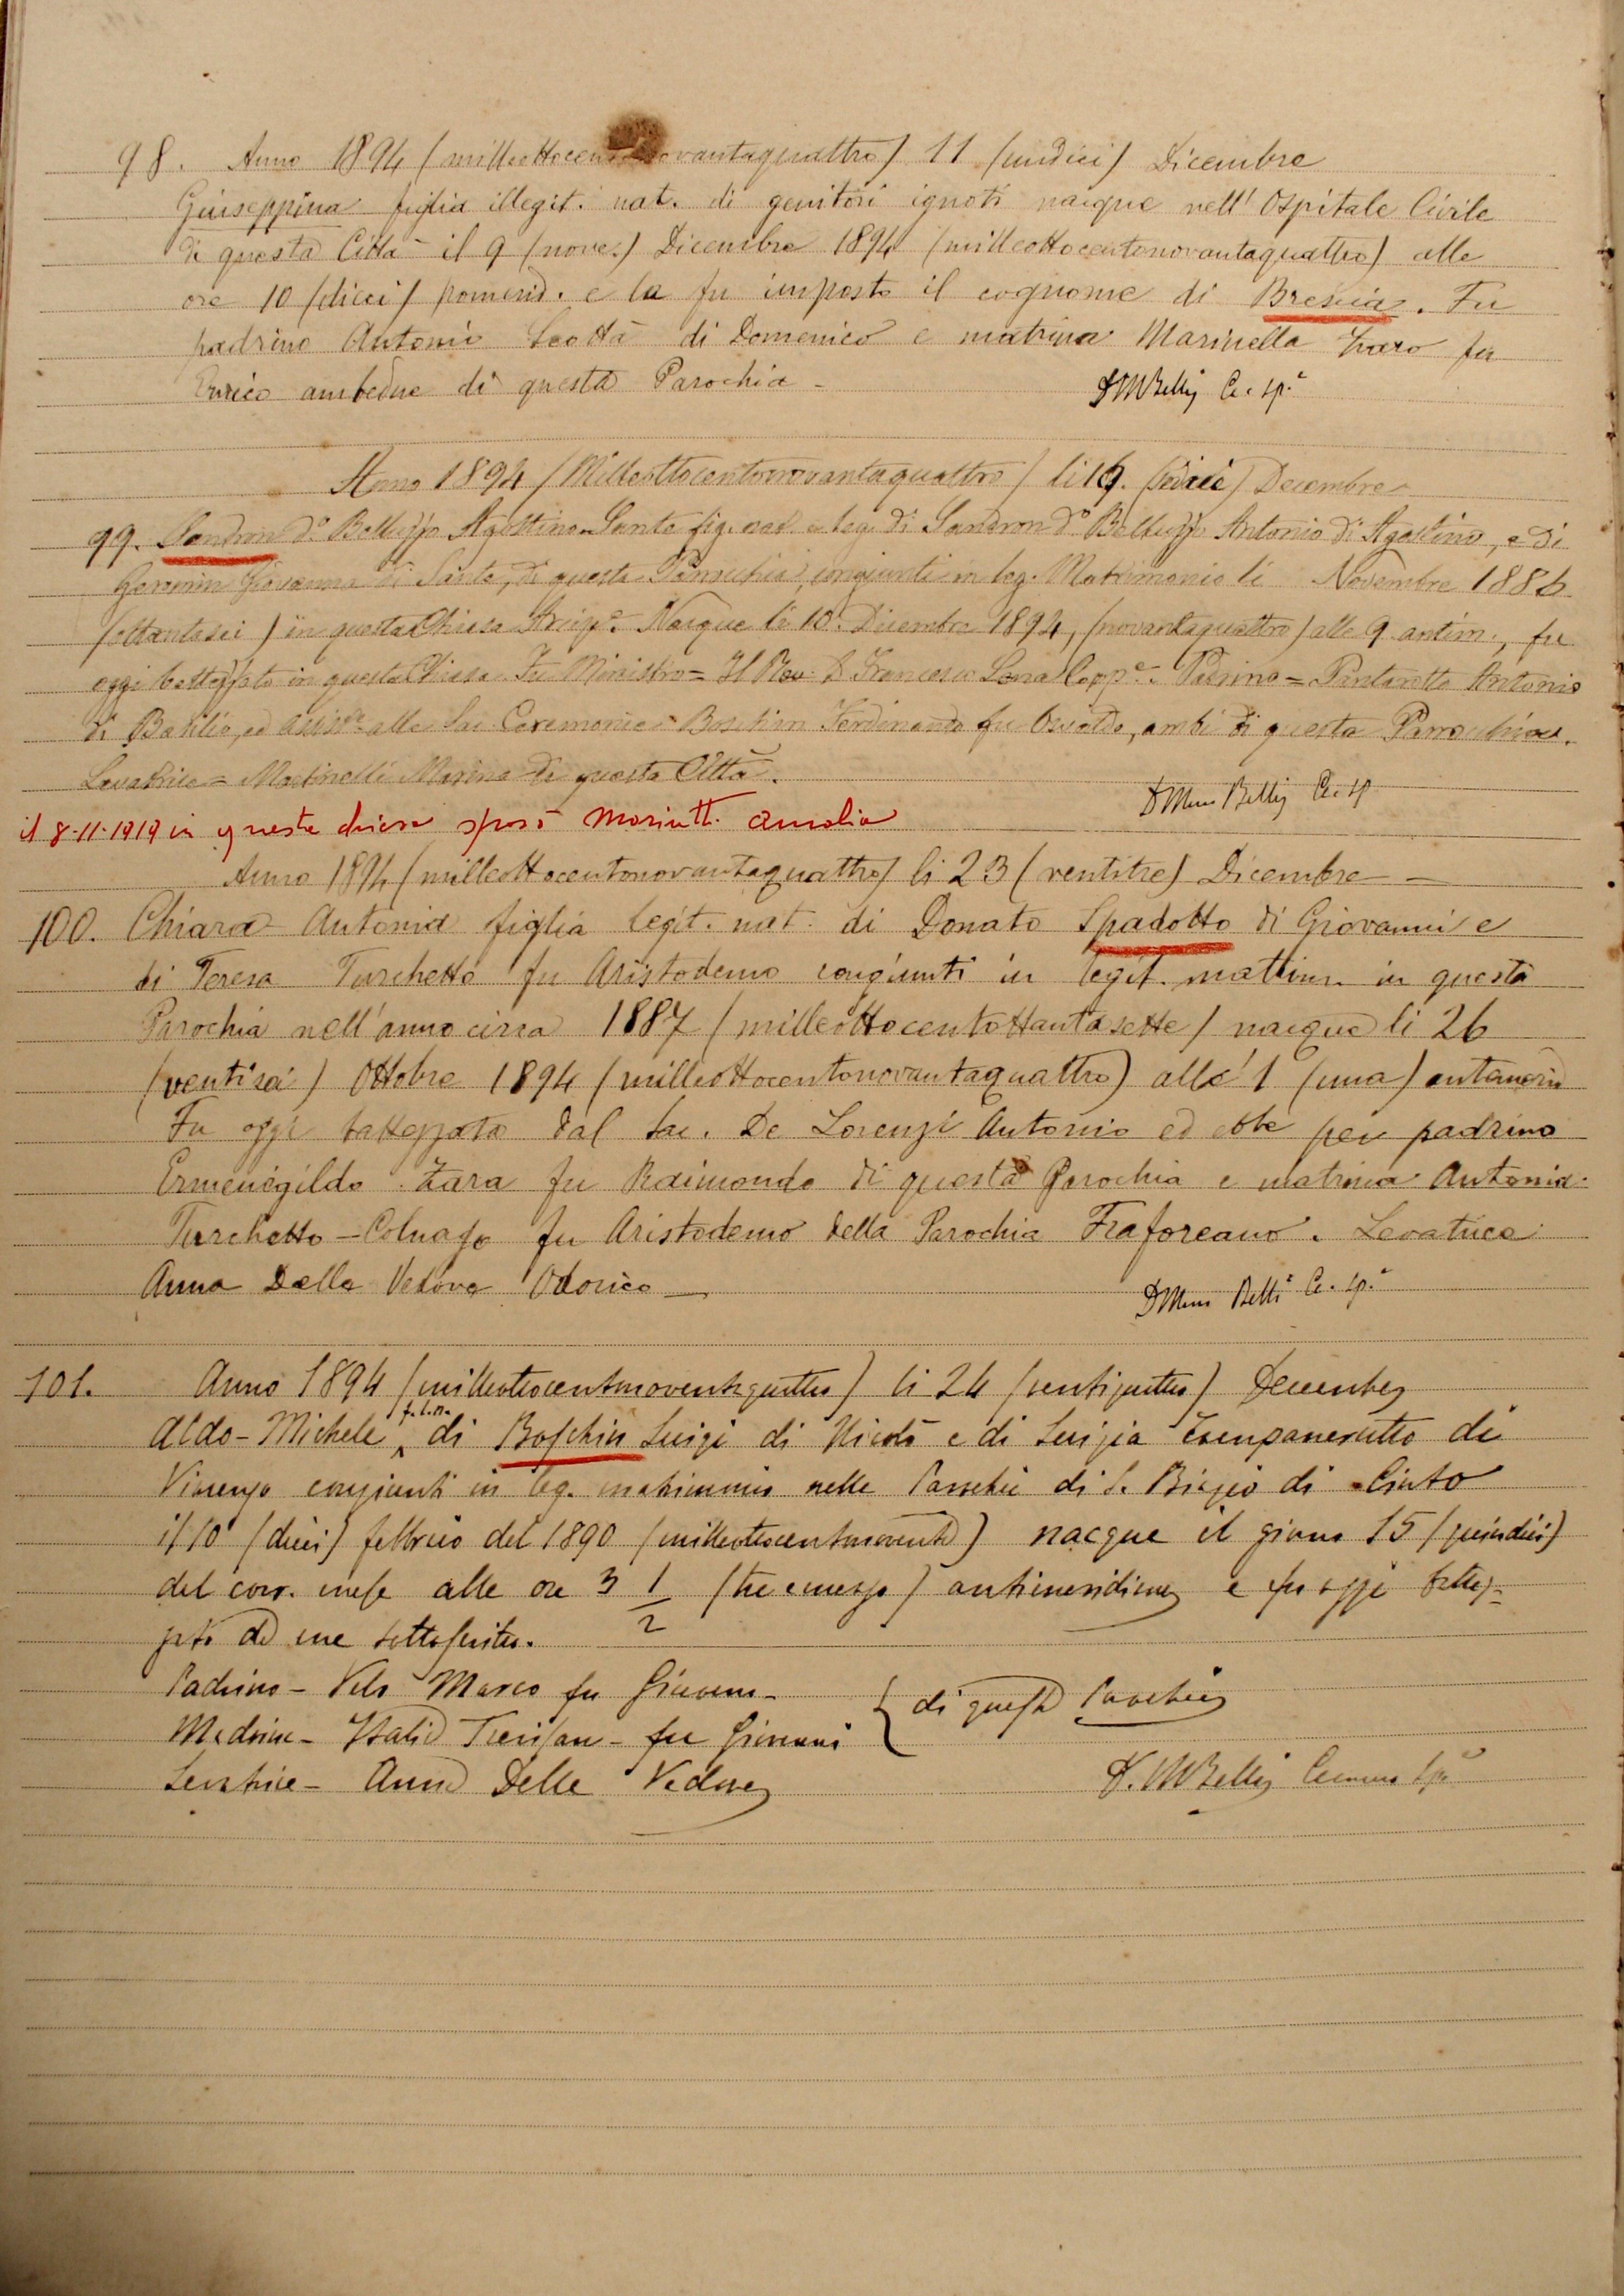 98. Anno 1894 (milleottocentonovantaquattro) 11 (undici) Dicembre
Giuseppina figlia illegit. nat. di genitori ignoti nacque nell' Ospitale Civile
di questa Città il 9 (nove) Dicembre 1894 (milleottocentonovantaquattro) alle
ore 10 (dieci) pomerid. e la fu imposto il cognome di Brescia. Fu
padrino Antonio Scottà di Domenico e matrina Marinella Zaro fu
Enrico ambedue di questa Parochia -
Anno 1894 (Milleottocentonovantaquattro) li 16. (Sedici) Decembre
99. Sandron do Belluzzo Agostino-Sante fig. nat. e leg. di Sandron do Belluzzo Antonio di Agostino, e di
Geromin Giovanna di Sante, di questa Parrochia, congiunti in leg. Matrimonio li Novembre 1886
(ottantasei) in questa Chiesa Arcip. Nacque li 10. Dicembre 1894, (novantaquattro) alle 9 antim., fu
oggi battezzato in questa Chiesa. Fu Ministro = Il Rev. D. Francesco Lena Capp.e Padrino = Pantarotto Antonio
di Basilio, ed assis.te alle Sac. Ceremonie Boschin Ferdinando fu Osvaldo, ambi di questa Parrochia.
Levatrice = Martinelli Marina di questa Città.
il 8-11-1919 in questa chiesa sposò Moriutti Amalia
Anno 1894 (milleottocentonovantaquattro) li 23 (ventitre) Dicembre
100. Chiara Antonia figlia legit. nat. di Donato Spadotto di Giovanni e
di Teresa Turchetto fu Aristodemo congiunti in legit. matrim. in questa
Parochia nell'anno circa 1887 (milleottocentottantasette) nacque li 26
(ventisei) Ottobre 1894 (milleottocentonovantaquattro) alle 1 (una) antimerid
Fu oggi battezzata dal Sac. De Lorenzi Antonio ed ebbe per padrino
Ermenegildo Zara fu Raimondo di questa Parochia e matrina Antonia
Turchetto - Colnago fu Aristodemo della Parochia Fraforeano. Levatrice
Anna Della Vedova Odorico
101. Anno 1894 (milleottocentonovantaquattro) li 24 (ventiquattro) Decembre
Aldo - Michele f.l.n. di Boschin Luigi di Nicolò e di Luigia Campanerutto di
Vincenzo congiunti in leg. matrimonio nella Parrochia di S. Biagio di Cinto
il 10 (dieci) febbraio del 1890 (milleottocentonovanta) nacque il giorno 15 (quindici)
del corr. mese alle ore 3 1/2 (tre e mezzo) antimeridiane e fu oggi battez=
zato da me sottoscritto.
Padrino - Marco fu Giovanni
Madrina - Italia Trevisan - fu Giovanni { di questa Parochia
Levatrice - Anna Della Vedova